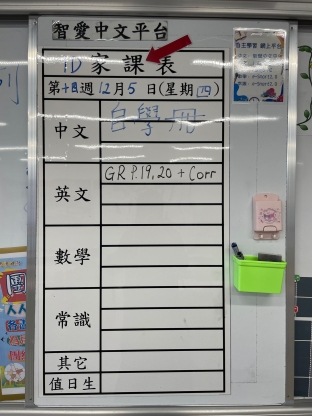 智愛中文平台
1D 家課表
第十四週 12月5日(星期四)
中文 自學冊
英文 GR P.19,20 + Corr
數學
常識
其它
值日生